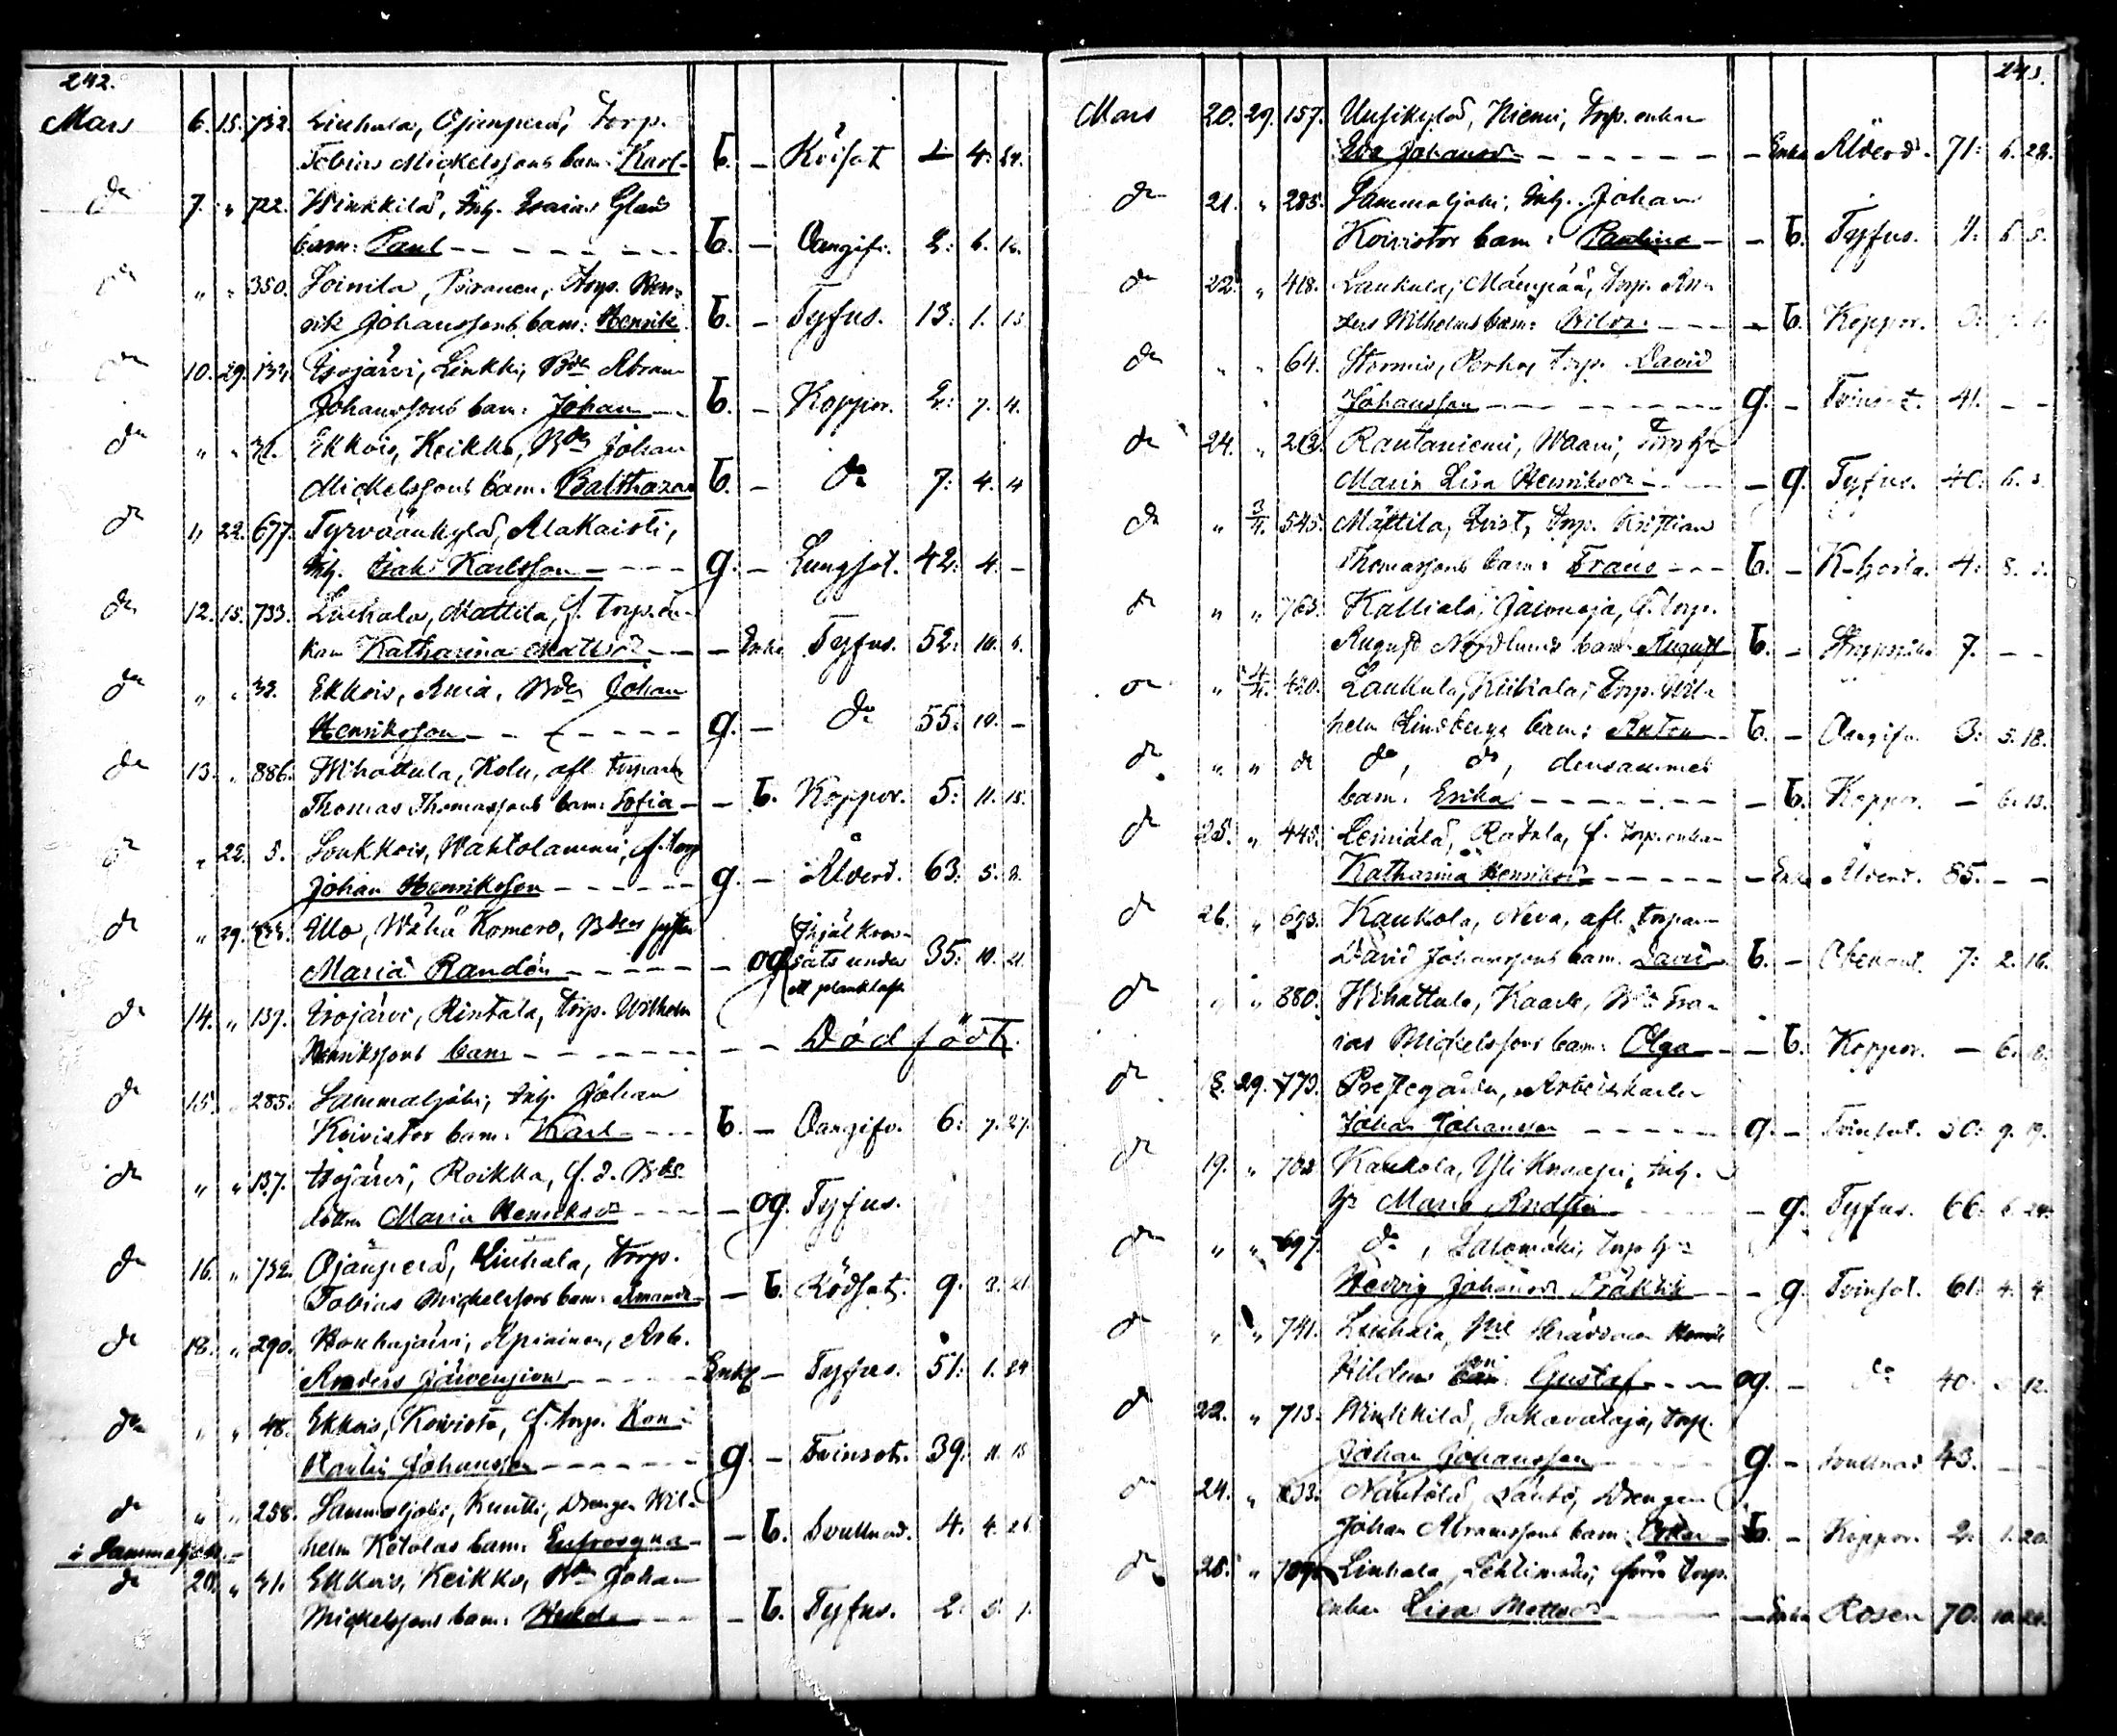 242.
Mars 6. 15. 732. Liuhala, Ojanperä, Torp.
Tobias Mickelssons barn: Karl - b. - Kvisot 1 4. 24.
do 7. " 722. Winkkilä, Inh. Esaias Glans
barn: Paul - b. - Oangifv. 2: 6.
do " " 350. Soinila, Torp. Hen-
rik Johanssons barn: Henrik b. - Tyfus. 13: 1. 13
do 10. 29. Isojärvi, Linkki, Bde Abram
Johanssons barn: Johan b. - Koppor. 2: 7. 4.
do " " Ekkois, Keikko, Bdn Johan
Mickelssons barn: Balthazar b. - do 7: 4. 4
do 11 22. 677. Tyrväänkylä, Alakaisti,
Inh. Isak Karlsson g. - Lungsot. 42: 4. -
do 12. 15. 733. Liuhala, Mattila, f. torp.en-
kan Katharina Mattsdr - Enka Tyfus. 52: 10.
do " " 32. Ekkois, Bdn Johan
Henriksson g. - do 55: 10. -
do 13. " 886. Wihattula, Kolu, afl. torparen
Thomas Thomassons barn: Sofia - b. Koppor. 5: 11. 15.
do " 22. 5. Soukkois, Wahtolammi, f. torp
Johan Henriksson g. - Ålderd. 63: 5. 2.
do " 29. Illo, Wähä Komero, Bdns syster
Maria Randén - og. ihjälkros-
sats under 35: 10. 21.
ett planklass
do 14. " 139. Isojärvi, Rintala, torp. Wilhelm
Henrikssons barn - - Dödfödt.
do 15. " 285. Sammaljoki, Inh. Johan
Koivistos barn: Karl b. - Oangifv. 6: 7. 27.
do " " 137. Isojärvi, Roikka, f.d. Bds.
dottern Maria Henriksdr - og. Tyfus.
do 16. " 732. Ojanperä, Liuhala, torp.
Tobias Mickelssons barn: Amanda - b. Rödsot. 9. 3. 21
do 18. " 290. Houhajärvi, Arb.
Anders Järvensivu Enkl. - Tyfus. 51: 1. 24
do " " 48. Ekkois, Koivisto, f. torp. Kon-
stantin Johansson g. - Tvinsot. 39. 11. 15
do " " 258. Sammaljoki, Knutti, Drengen Wil-
i Sammaljoki. - helm Kotolas barn: Eufrosyna - b. Svullnad. 4. 4. 26
do 20. " 31. Ekkois, Keikko, Bdn Johan
Mickelssons barn: Hulda - b. Tyfus. 2. 1.
243.
Mars 20. 29. 157. Uusikylä, Niemi, Torp. enkan
Eva Johansdr - Enka Ålderd. 71: 6. 28.
do 21. " 285. Sammaljoki, Inh. Johan
Koivistos barn: Paulina - b. Tyfus. 6. 5.
do 22. " 418. Laukula, Mäenpää, torp. An-
ders Wilhelms barn: - b. Koppor.
do " " 64. Stormis, Torp. David
Johansson g. - Tvinsot. 41. - -
do 24. " 262. Rautaniemi, Waani, Torp. h:u
Maria Lisa Henriksdr - g. Tyfus. 40. 6.
do " 3/4. 545. Mattila, Torp. Kristian
Thomassons barn: Frans b. - K-hosta. 4.
do " " 763. Kalliala, f. torp.
August Nordlunds barn: August b. - 7. - -
do " 4/4. 420. Laukula, torp. Wil-
helm Lindbergs barn: Anton b. - Oangifv. 3. 5. 18.
do " " do do, do, densammes
barn: Erika - b. Koppor. - 6. 13.
do 25. " 445. Leiniälä, f. torp.enkan
Katharina Henriksdr - Enka Ålderd. 85. - -
do 26. " 693. Kaukola, Neva, afl. torparen
David Johanssons barn: David b. - Obekant. 7: 2. 16.
do " " 880. Wihattula, Kaark, Bdn Esa-
ias Mickelssons barn: Olga - b. Koppor. - 6.
do 8. 29. 773. Prestegården, Arbetskarlen
Johan Johansson g. - Tvinsot. 50. 9. 19.
do 19. " 702 Kaukola, Yli Knaapi, Inh.
h:u Maria - g. Tyfus. 66. 6. 24.
do " " 697. do, Salomäki, torp.h:u
Hedvig Johansdr - g. Tvinsot. 61. 4. 4.
do " " 741. Liuhala,
Gustaf og. - do 40. 12.
do 22. " 713. Winkkilä, Torp.
Johan Johansson g. - Svullnad 43. - -
do 24. " Näntölä, Drengen
Johan Abramssons barn: Oskar b. - Koppor. 2. 1. 20.
do 25. " Liuhala, Lehtimäki, förra torp.
enkan Lisa Mattsdr - Enka Rosen 70. 10.